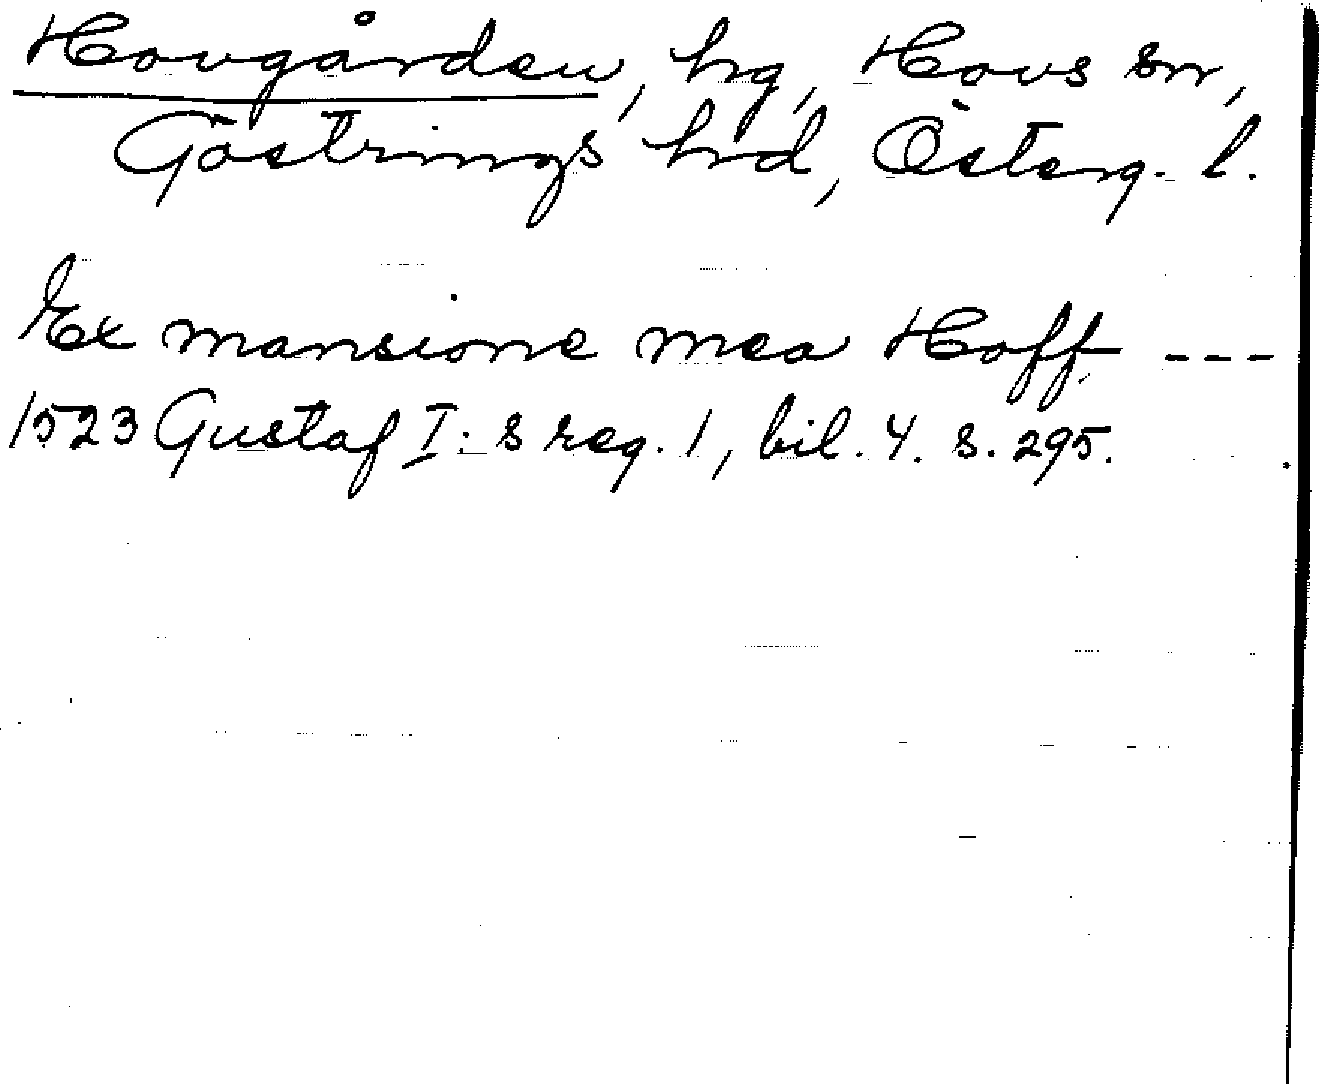 Hovgården, hg, Hovs sn,
Göstrings hrd, Österg. l.
Ex mansione mea Hoff ---
1523 Gustaf I:s reg. 1, bil. 4. s. 295.